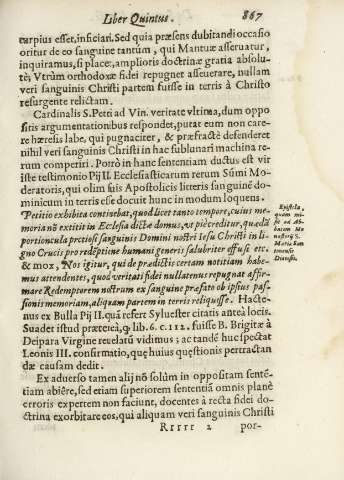 Liber Quintus. 867
turpius esset, inficiari. Sed quia præsens dubitandi occasio
oritur de eo sanguine tantùm, qui Mantuæ asseruatur,
inquiramus, si placet, amplioris doctrinæ gratia absolu-
tè; Vtrùm orthodoxæ fidei repugnet asseuerare, nullam
veri sanguinis Christi partem fuisse in terris à Christo
resurgente relictam.
Cardinalis S. Petri ad Vin. veritate vltima, dum oppo
sitis argumentationibus respondet, putat eum non care-
re hæresis labe, qui pugnaciter, & præfractè defenderet
nihil veri sanguinis Christi in hac sublunari machina re-
rum comperiri. Porrò in hanc sententiam ductus est vir
iste testimonio Pij II. Ecclesiasticarum rerum Sũmi Mo-
deratoris, qui olim suis Apostolicis litteris sanguinẽ do-
minicum in terris esse docuit hunc in modum loquens.
Petitio exhibita continebat, quod licet tanto tempore, cuius me-
moria nõ extitit in Ecclesia dictæ domus, vt piè creditur, quædã
portiuncula preciosi sanguinis Domini nostri Iesu Christi in li-
gno Crucis pro redẽptione humani generis salubriter effusi etc.
& mox, Nos igitur, qui de prædictis certam notitiam habe-
mus attendentes, quod veritati fidei nullatenus repugnat affir-
mare Redemptorem nostrum ex sanguine præfato ob ipsius pas-
sionis memoriam, aliquam partem in terris reliquisse. Hacte-
nus ex Bulla Pij II. quã refert Syluester citatis anteà locis.
Suadet istud præterea, q̃ lib. 6. c. 111. fuisse B. Brigitæ à
Deipara Virgine reuelatũ vidimus; ac tandẽ huc spectat
Leonis III. confirmatio, quę huius quęstionis pertractan
dæ causam dedit.
Ex aduerso tamen alij nõ solùm in oppositam sentẽ-
tiam abiêre, sed etiam superiorem sententiã omnis planè
erroris expertem non faciunt, docentes à recta fidei do-
ctrina exorbitare eos, qui aliquam veri sanguinis Christi
Rrrrr 2 por-
Epistola,
quam mi-
sit ad Ab-
batem Mo
nasterij S.